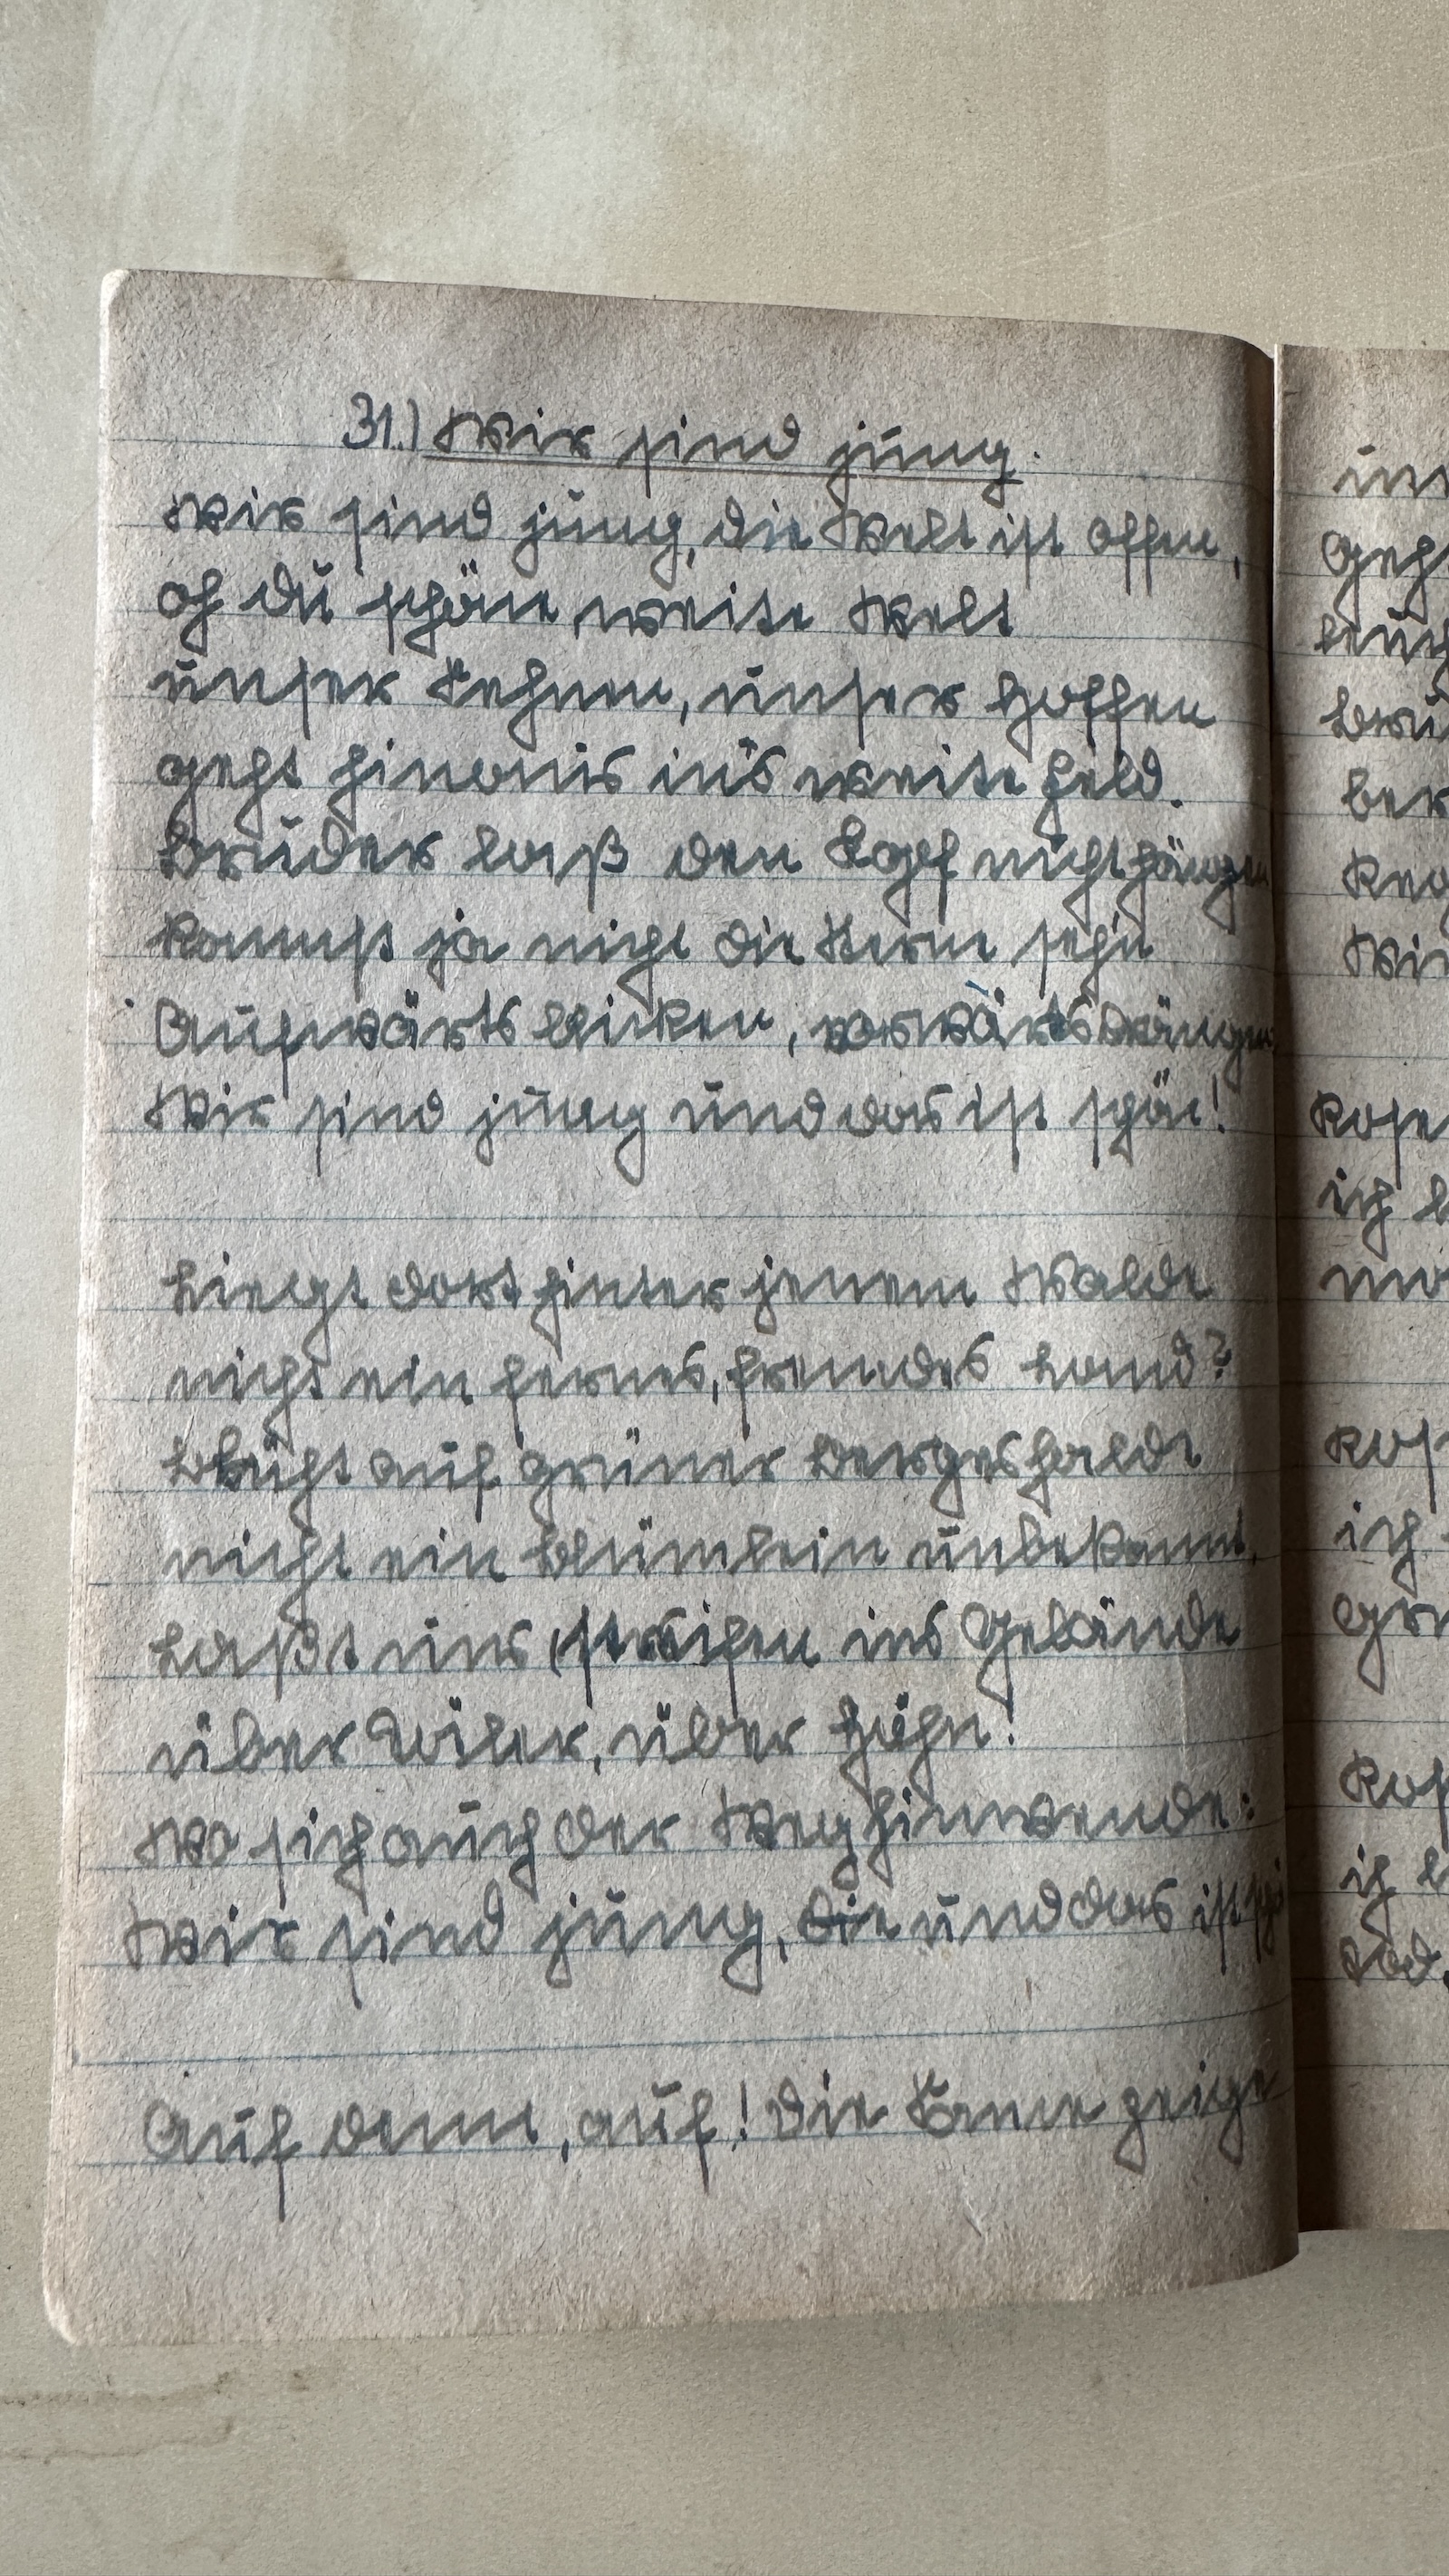 31.) Wir sind jung.
Wir sind jung, die Welt ist offen,
oh du schöne, weite Welt
unser Sehnen, unser Hoffen
geht hinaus in's weite Feld.
Bruder laß den Kopf nicht hängen
kannst ja nicht die Sterne sehn
Aufwärts blicken, vorwärts drängen
Wir sind jung und das ist schön!
Liegt dort hinter jenem Walde
nicht ein fernes, fremdes Land?
Blüht auf grüner Bergeshalde
nicht ein Blümlein unbekannt.
Laßt uns streifen ins Gelände
über Täler, über Höhn!
Wo sich auch der Weg hinwende:
Wir sind jung, die und das ist schö
Auf denn, auf! Die Sonne zeige
un
geh
leuch
brü
ber
Reg
Wir
Rose
ich
Ros
ich
Ros
ich
Tod.